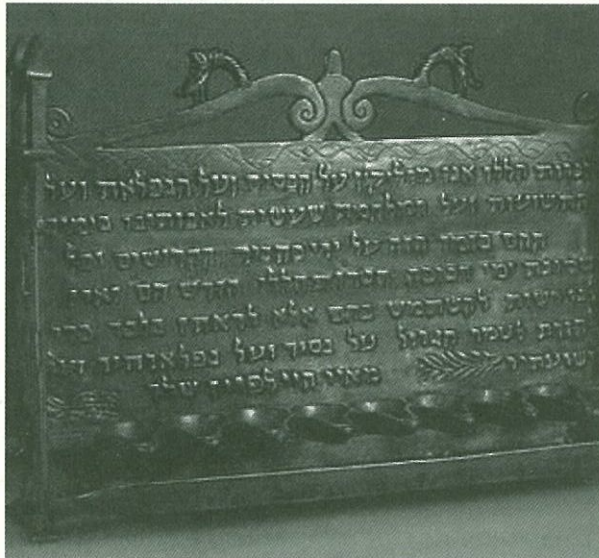 הנרות הללו אנו מדליקין על הנסים ועל הנפלאות ועל
התשועות ועל המלחמות שעשית לאבותינו בימים
ההם בזמן הזה על ידי כהניך הקדושים וכל
שמונת ימי חנוכה הנרות הללו קודש הם ואין
לנו רשות להשתמש בהם אלא לראותן בלבד כדי
להודות לשמך הגדול על נסיך ועל נפלאותיך ועל
ישועתיך